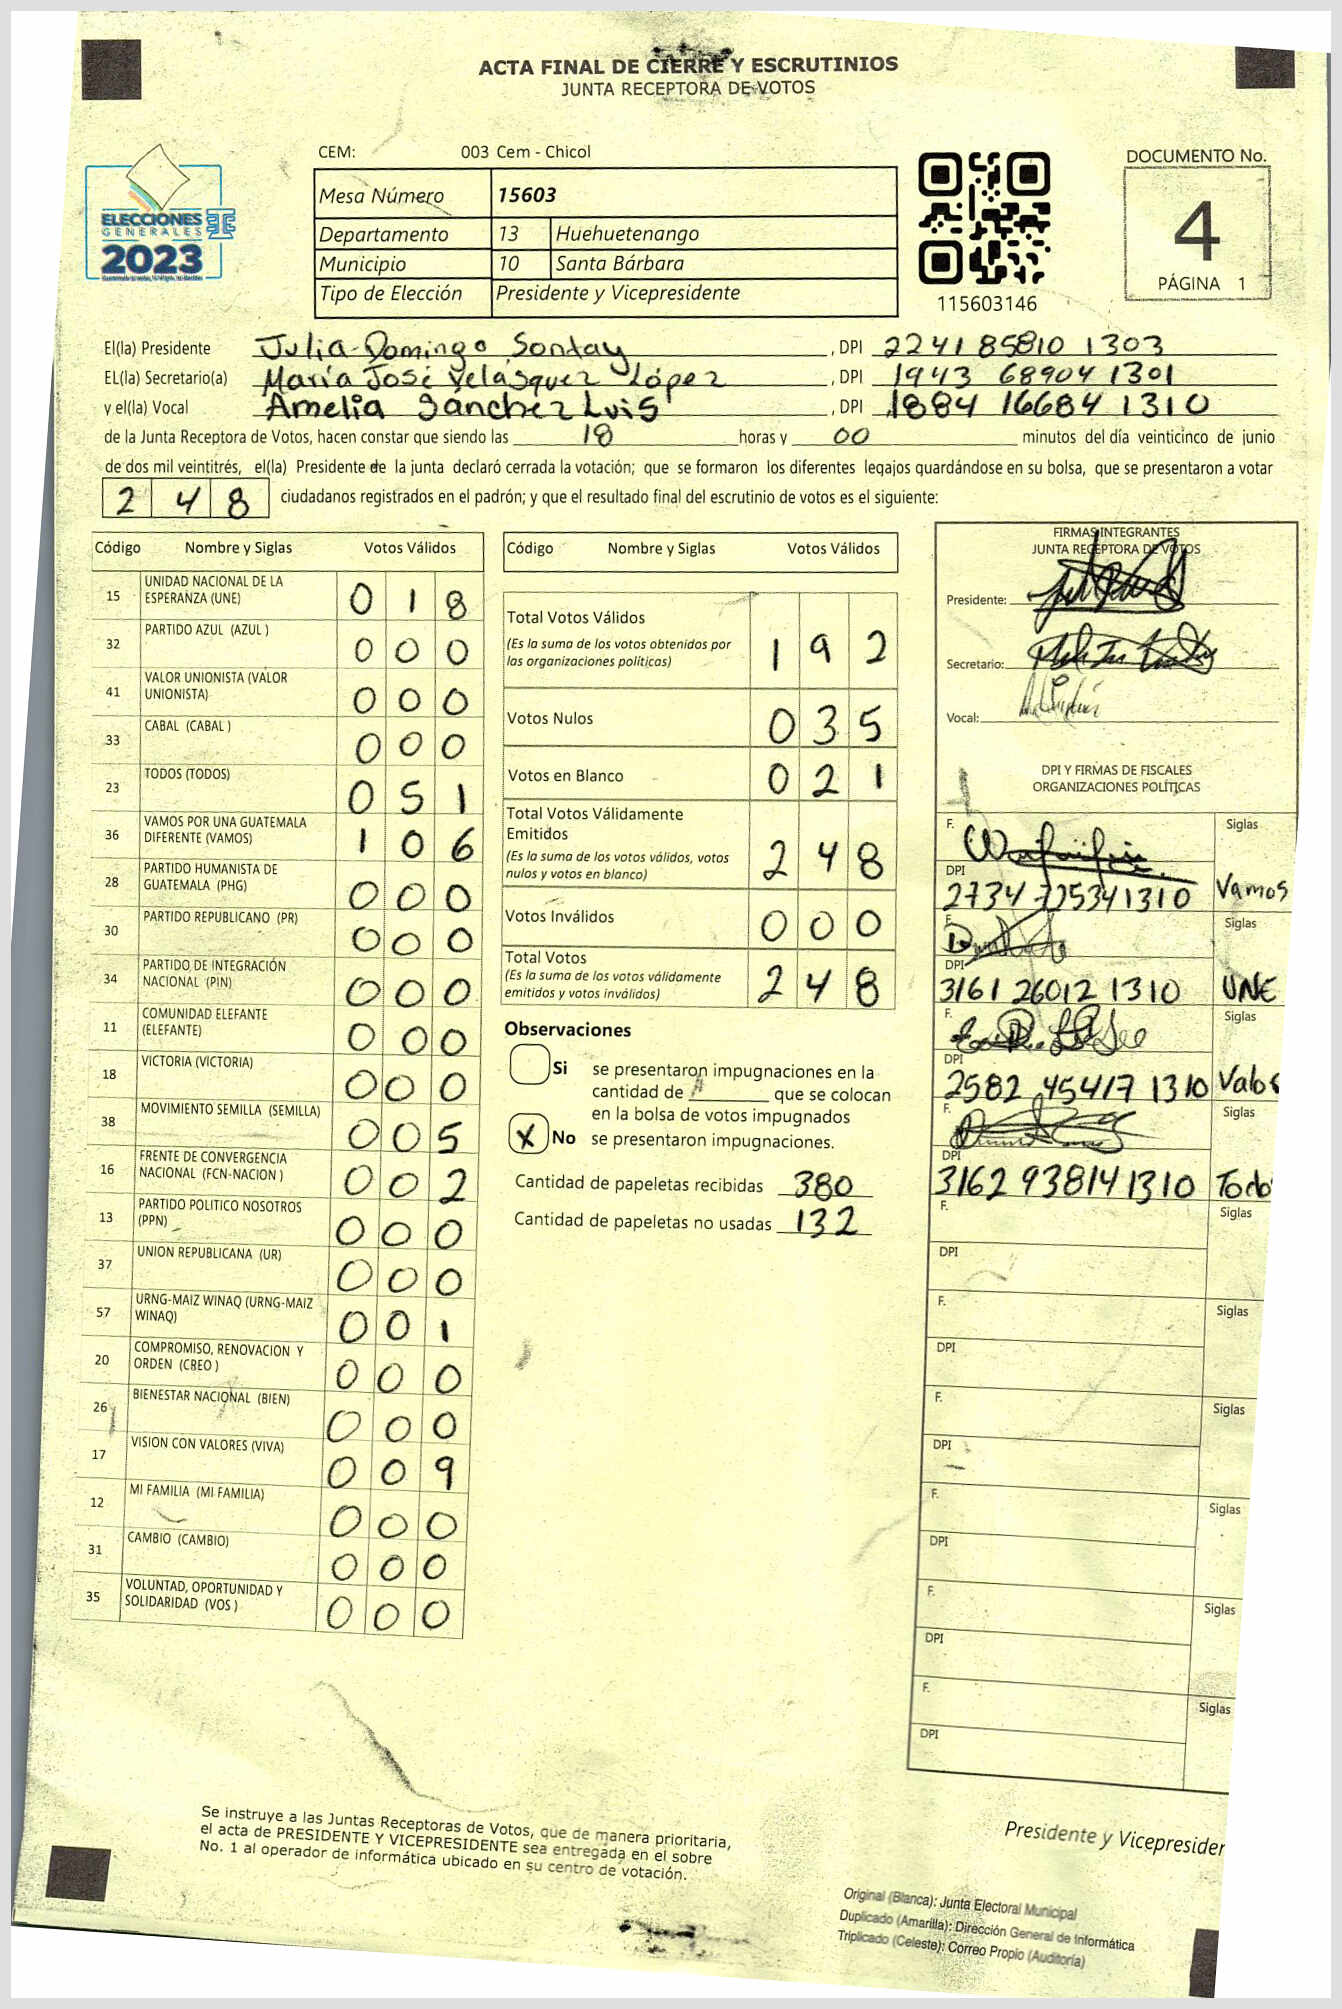 ACTA FINAL DE CIERRE Y ESCRUTINIOS
JUNTA RECEPTORA DE VOTOS
CEM: 003 Cem - Chicol
Mesa Número 15603
Departamento 13 Huehuetenango
Municipio 10 Santa Bárbara
Tipo de Elección Presidente y Vicepresidente
ELECCIONES
GENERALES
2023
115603146
DOCUMENTO No.
4
PÁGINA 1
El(la) Presidente Julia Domingo Sontay, DPI 2241 85810 1303
EL(la) Secretario(a) María José Velásquez López, DPI 1943 68904 1301
y el(la) Vocal Amelia Sánchez Luis, DPI 1884 16684 1310
de la Junta Receptora de Votos, hacen constar que siendo las 18 horas y 00 minutos del día veinticinco de junio
de dos mil veintitrés, el(la) Presidente de la junta declaró cerrada la votación; que se formaron los diferentes legajos guardándose en su bolsa, que se presentaron a votar
2 4 8 ciudadanos registrados en el padrón; y que el resultado final del escrutinio de votos es el siguiente:
Código Nombre y Siglas Votos Válidos
15 UNIDAD NACIONAL DE LA ESPERANZA (UNE) 0 1 8
32 PARTIDO AZUL (AZUL ) 0 0 0
41 VALOR UNIONISTA (VALOR UNIONISTA) 0 0 0
33 CABAL (CABAL ) 0 0 0
23 TODOS (TODOS) 0 5 1
36 VAMOS POR UNA GUATEMALA DIFERENTE (VAMOS) 1 0 6
28 PARTIDO HUMANISTA DE GUATEMALA (PHG) 0 0 0
30 PARTIDO REPUBLICANO (PR) 0 0 0
34 PARTIDO DE INTEGRACIÓN NACIONAL (PIN) 0 0 0
11 COMUNIDAD ELEFANTE (ELEFANTE) 0 0 0
18 VICTORIA (VICTORIA) 0 0 0
38 MOVIMIENTO SEMILLA (SEMILLA) 0 0 5
16 FRENTE DE CONVERGENCIA NACIONAL (FCN-NACION ) 0 0 2
13 PARTIDO POLITICO NOSOTROS (PPN) 0 0 0
37 UNION REPUBLICANA (UR) 0 0 0
57 URNG-MAIZ WINAQ (URNG-MAIZ WINAQ) 0 0 1
20 COMPROMISO, RENOVACION Y ORDEN (CREO ) 0 0 0
26 BIENESTAR NACIONAL (BIEN) 0 0 0
17 VISION CON VALORES (VIVA) 0 0 9
12 MI FAMILIA (MI FAMILIA) 0 0 0
31 CAMBIO (CAMBIO) 0 0 0
35 VOLUNTAD, OPORTUNIDAD Y SOLIDARIDAD (VOS ) 0 0 0
Código Nombre y Siglas Votos Válidos
Total Votos Válidos
(Es la suma de los votos obtenidos por las organizaciones políticas) 1 9 2
Votos Nulos 0 3 5
Votos en Blanco 0 2 1
Total Votos Válidamente Emitidos
(Es la suma de los votos válidos, votos nulos y votos en blanco) 2 4 8
Votos Inválidos 0 0 0
Total Votos
(Es la suma de los votos válidamente emitidos y votos inválidos) 2 4 8
Observaciones
Si se presentaron impugnaciones en la
cantidad de que se colocan
en la bolsa de votos impugnados
X No se presentaron impugnaciones.
Cantidad de papeletas recibidas 380
Cantidad de papeletas no usadas 132
FIRMAS INTEGRANTES
JUNTA RECEPTORA DE VOTOS
Presidente:
Secretario:
Vocal:
DPI Y FIRMAS DE FISCALES
ORGANIZACIONES POLÍTICAS
F. Siglas
DPI
2734 72534 1310 Vamos
F. Siglas
DPI
3161 26012 1310 UNE
F. Siglas
DPI
2582 45417 1310 Valo
F. Siglas
DPI
3162 93814 1310 Todo
F. Siglas
DPI
F. Siglas
DPI
F. Siglas
DPI
F. Siglas
DPI
F. Siglas
DPI
F. Siglas
DPI
Se instruye a las Juntas Receptoras de Votos, que de manera prioritaria,
el acta de PRESIDENTE Y VICEPRESIDENTE sea entregada en el sobre
No. 1 al operador de informática ubicado en su centro de votación.
Presidente y Vicepresider
Original (Blanca): Junta Electoral Municipal
Duplicado (Amarilla): Dirección General de Informática
Triplicado (Celeste): Correo Propio (Auditoría)